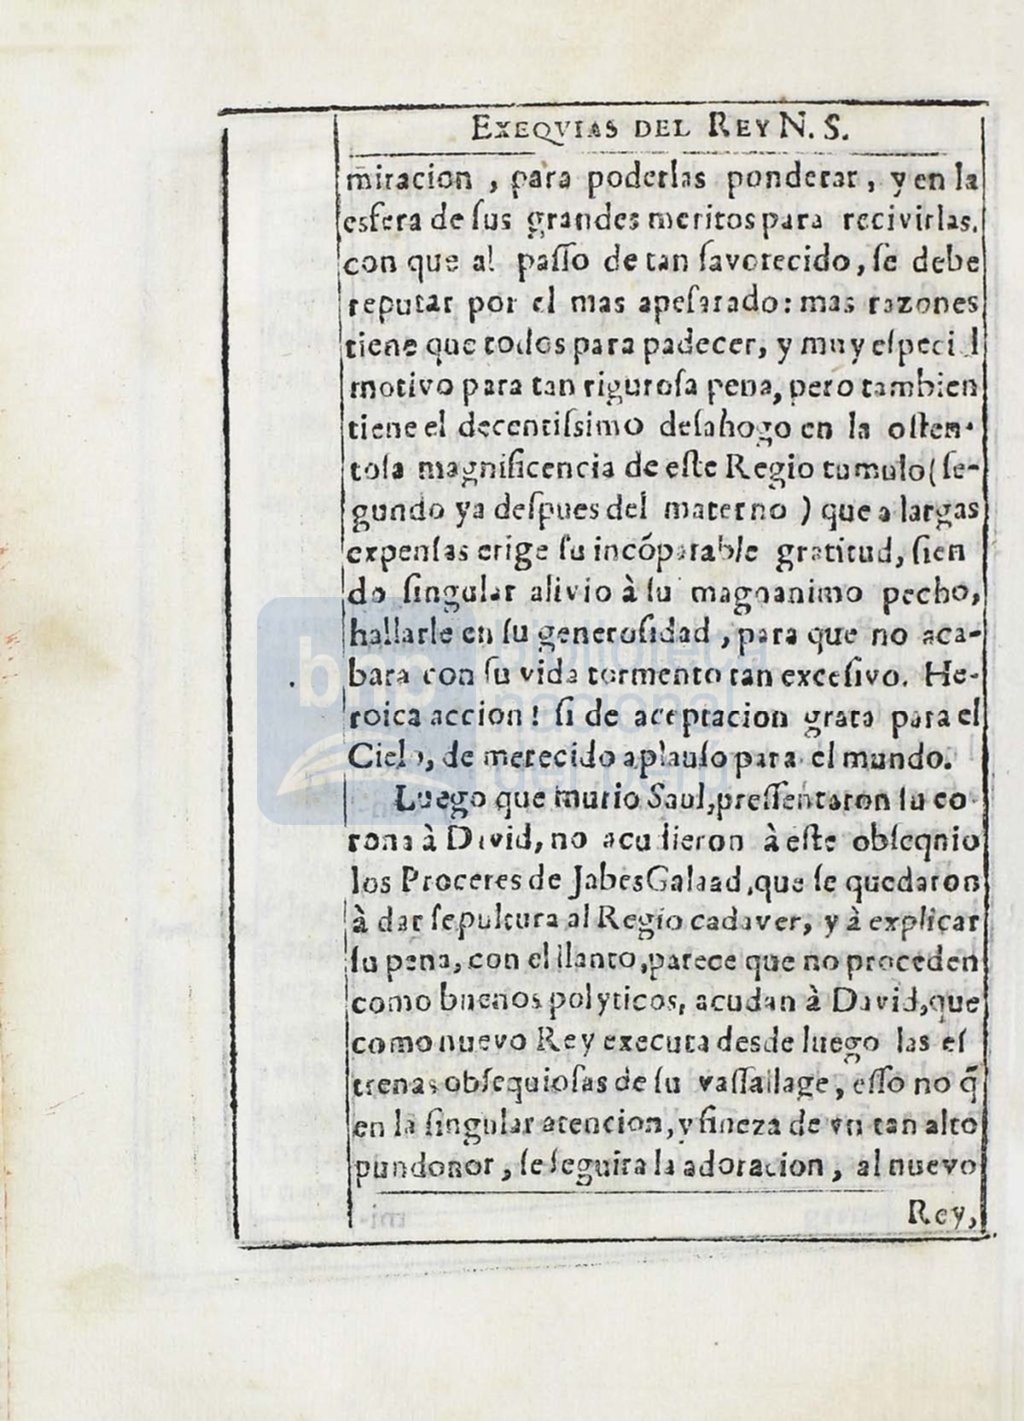 EXEQVIAS DEL REY N. S.
miracion , para poderlas ponderar , y en la
esfera de ſus grandes meritos para recivirlas.
con que al paſſo de tan favorecido, ſe debe
reputar por el mas apeſarado: mas razones
tiene que todos para padecer, y muy eſpecial
motivo para tan riguroſa pena, pero tambien
tiene el decentiſsimo deſahogo en la oſten-
toſa magnificencia de eſte Regio tumulo (ſe-
gundo ya deſpues del materno ) que a largas
expenſas erige ſu incóparable gratitud, ſien
do ſingular alivio à ſu magnanimo pecho,
hallarle en ſu generoſidad , para que no aca-
bara con ſu vida tormento tan exceſivo. He-
roica accion! ſi de aceptacion grata para el
Cielo, de merecido aplauſo para el mundo.
Luego que murio Saul, preſſentaron ſu co
rona à David, no acudieron à eſte obſeqnio
los Proceres de Jabes Galaad, que ſe quedaron
à dar ſepultura al Regio cadaver, y à explicar
ſu pena, con el llanto, parece que no proceden
como buenos polyticos, acudan à David, que
como nuevo Rey executa desde luego las eſ
trenas obſequioſas de ſu vaſſallage, eſſo no q̃
en la ſingular atencion, y fineza de vn tan alto
pundonor , ſe ſeguira la adoracion , al nuevo
Rey,
biblioteca
nacional